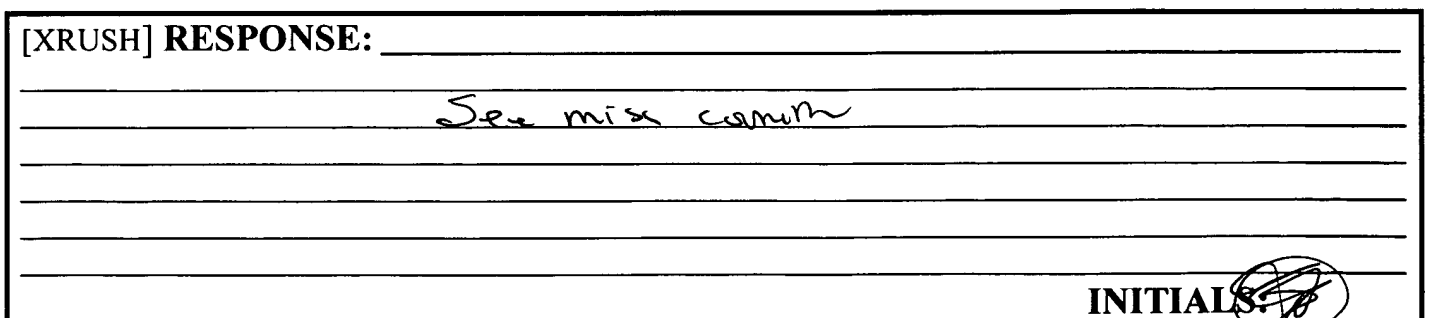 [XRUSH] RESPONSE:
See misc
INITIALS: